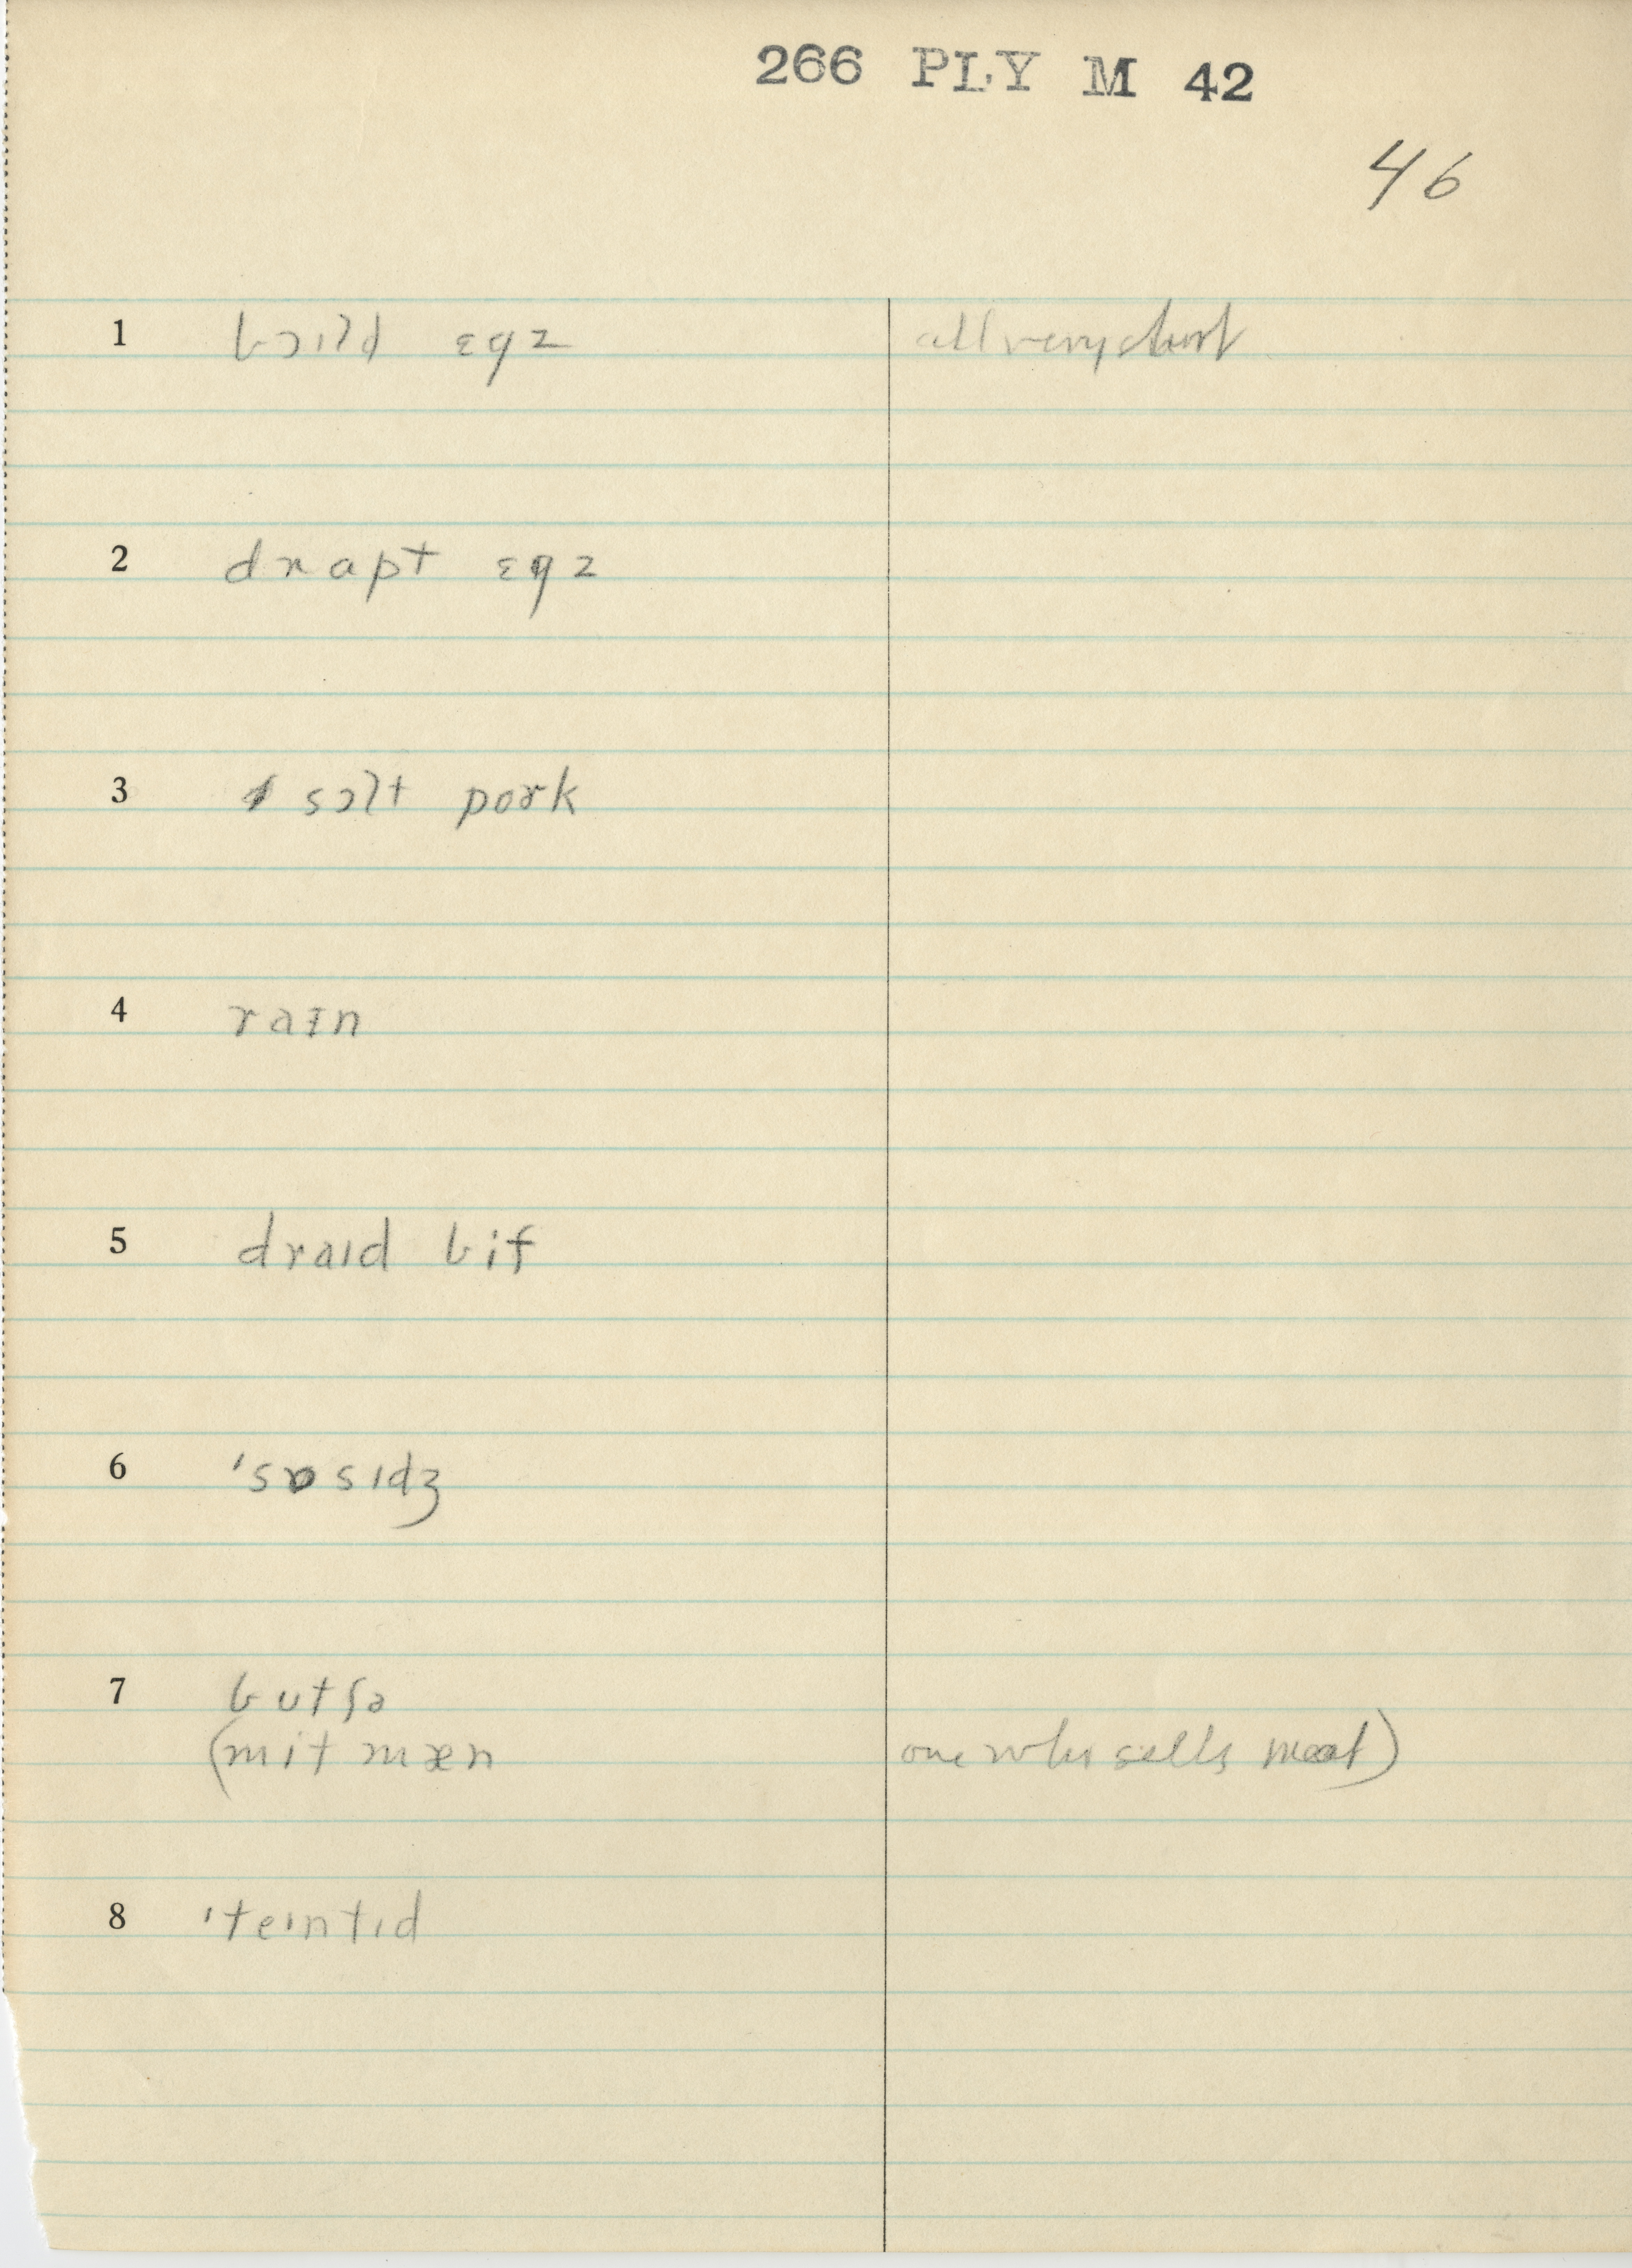 266 PLY M 42
46
1 bɔɪld ɛgz all very short
2 drapt ɛgz
3 sɔlt pork
4 raɪn
5 draɪd bif
6 'sɒsɪdʒ
7 butʃə
(mit mæn one who sells meat)
8 'teɪntɪd